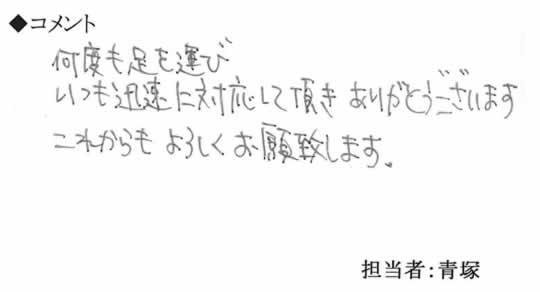 ◆コメント
何度も足を運び
いつも迅速に対応して頂き ありがとうございます
これからも よろしく お願致します。
担当者：青塚